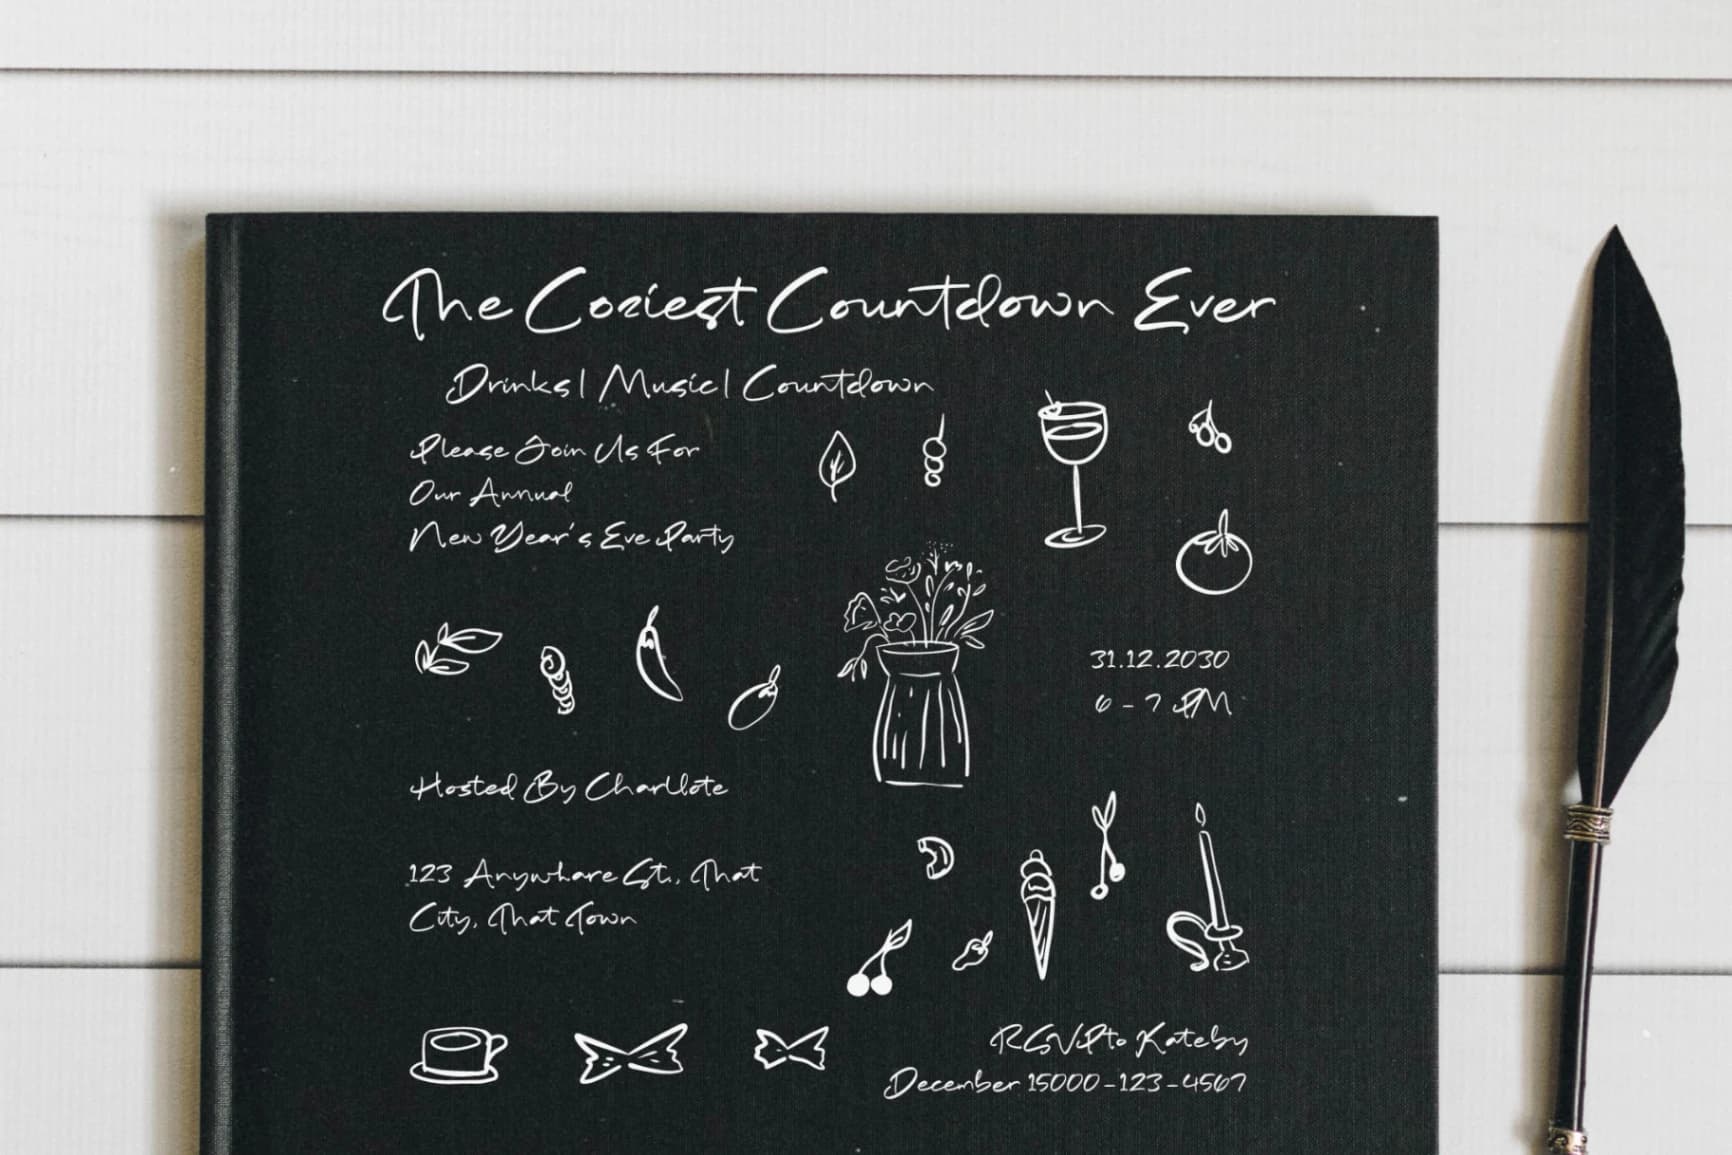 The Coziest Countdown Ever
Drinks | Music | Countdown
Please Join Us For
Our Annual
New Year's Eve Party
31.12.2030
6 - 7 PM
Hosted By Charllote
123 Anywhare St., That
City, That Town
RSVP to Kateby
December 15000-123-4567